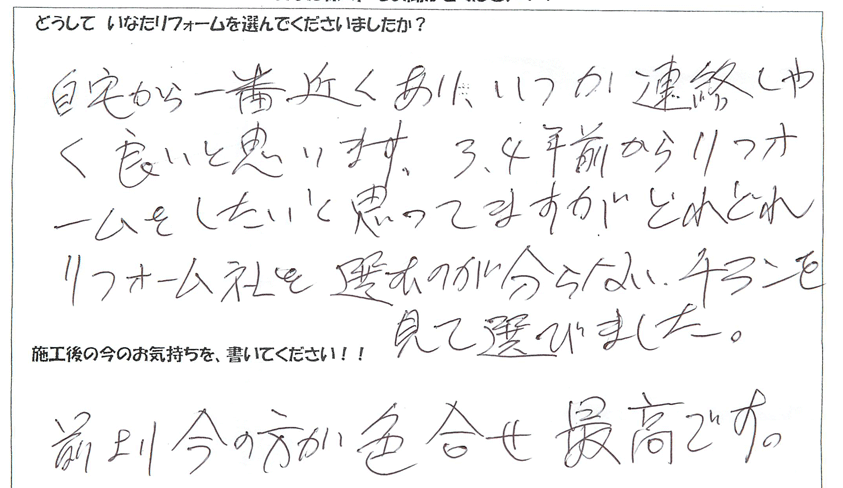 どうして いなだリフォームを選んでくださいましたか？
自宅から一番近くあり、いつか連絡しや
く良いと思います。3、4年前からリフォ
ームをしたいと思ってますがどれどれ
リフォーム社を選ぶのが分らない、チラシを
見て選びました。
施工後の今のお気持ちを、書いてください！！
前より今の方が色合せ最高です。